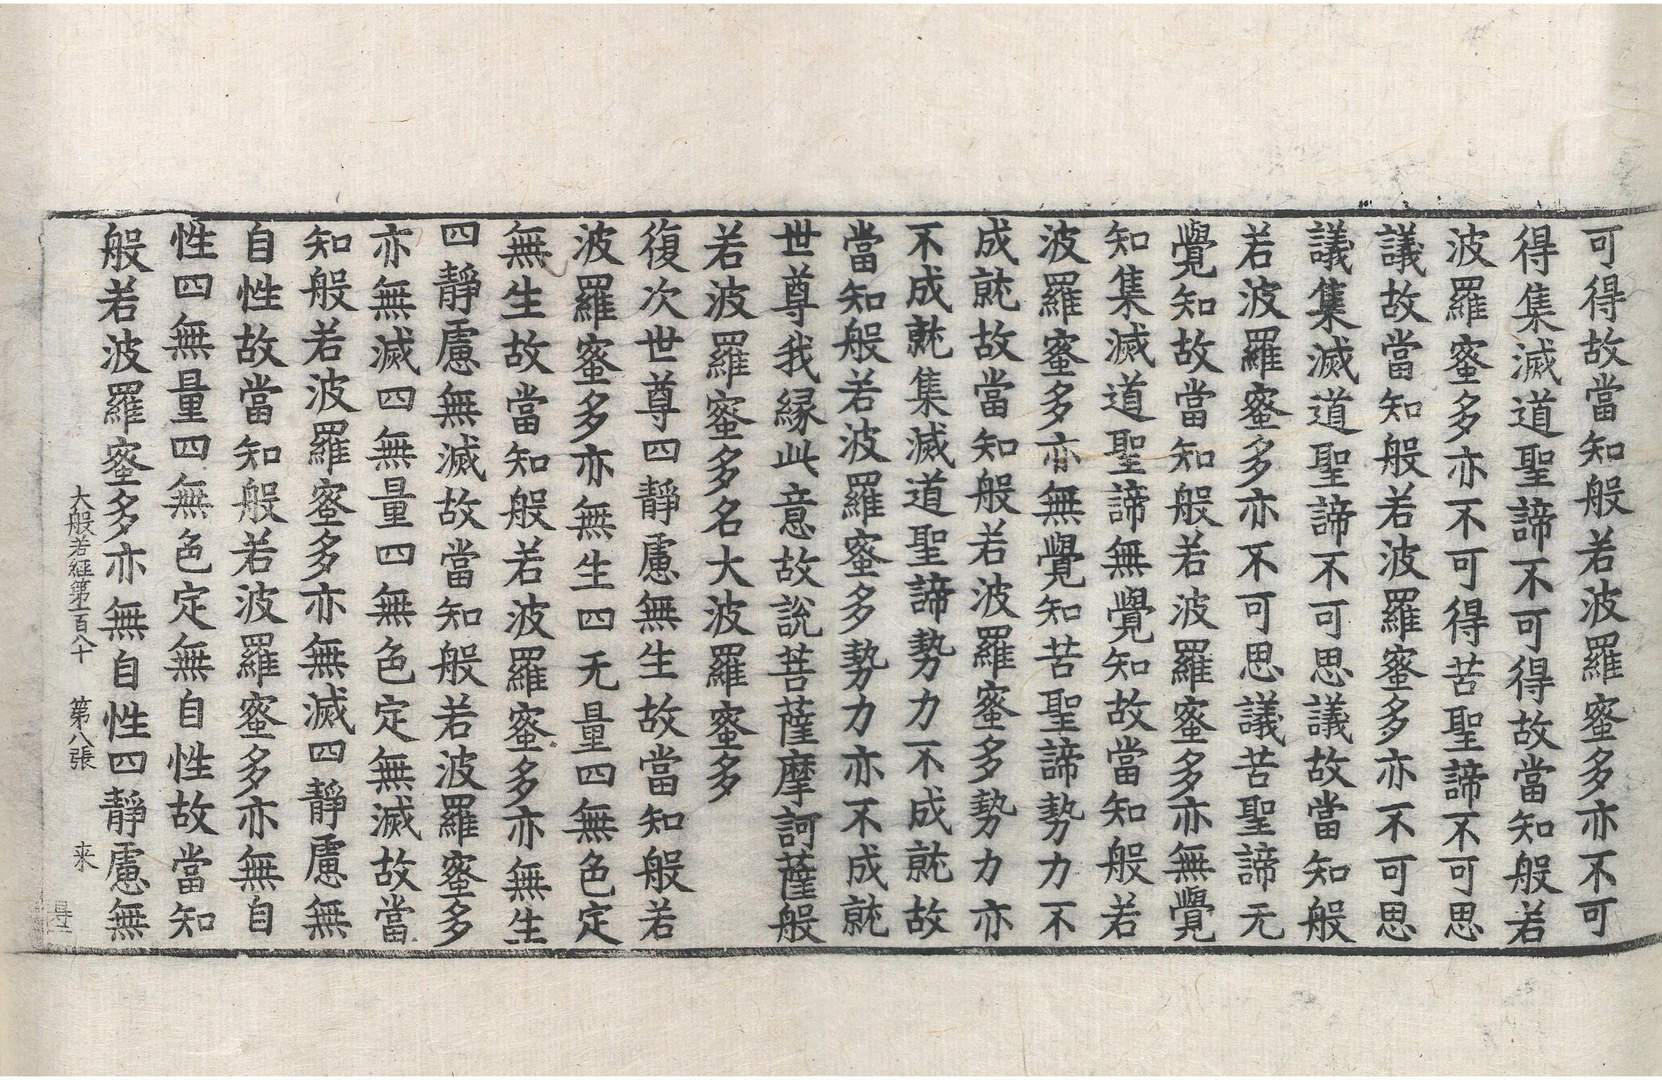 可得故當知般若波羅蜜多亦不可
得集滅道聖諦不可得故當知般若
波羅蜜多亦不可得苦聖諦不可思
議故當知般若波羅蜜多亦不可思
議集滅道聖諦不可思議故當知般
若波羅蜜多亦不可思議苦聖諦无
覺知故當知般若波羅蜜多亦無覺
知集滅道聖諦無覺知故當知般若
波羅蜜多亦無覺知苦聖諦勢力不
成就故當知般若波羅蜜多勢力亦
不成就集滅道聖諦勢力不成就故
當知般若波羅蜜多勢力亦不成就
世尊我縁此意故說菩薩摩訶薩般
若波羅蜜多名大波羅蜜多
復次世尊四靜慮無生故當知般若
波羅蜜多亦無生四无量四無色定
無生故當知般若波羅蜜多亦無生
四靜慮無滅故當知般若波羅蜜多
亦無滅四無量四無色定無滅故當
知般若波羅蜜多亦無滅四靜慮無
自性故當知般若波羅蜜多亦無自
性四無量四無色定無自性故當知
般若波羅蜜多亦無自性四靜慮無
大般若經第一百八十 第八張 来